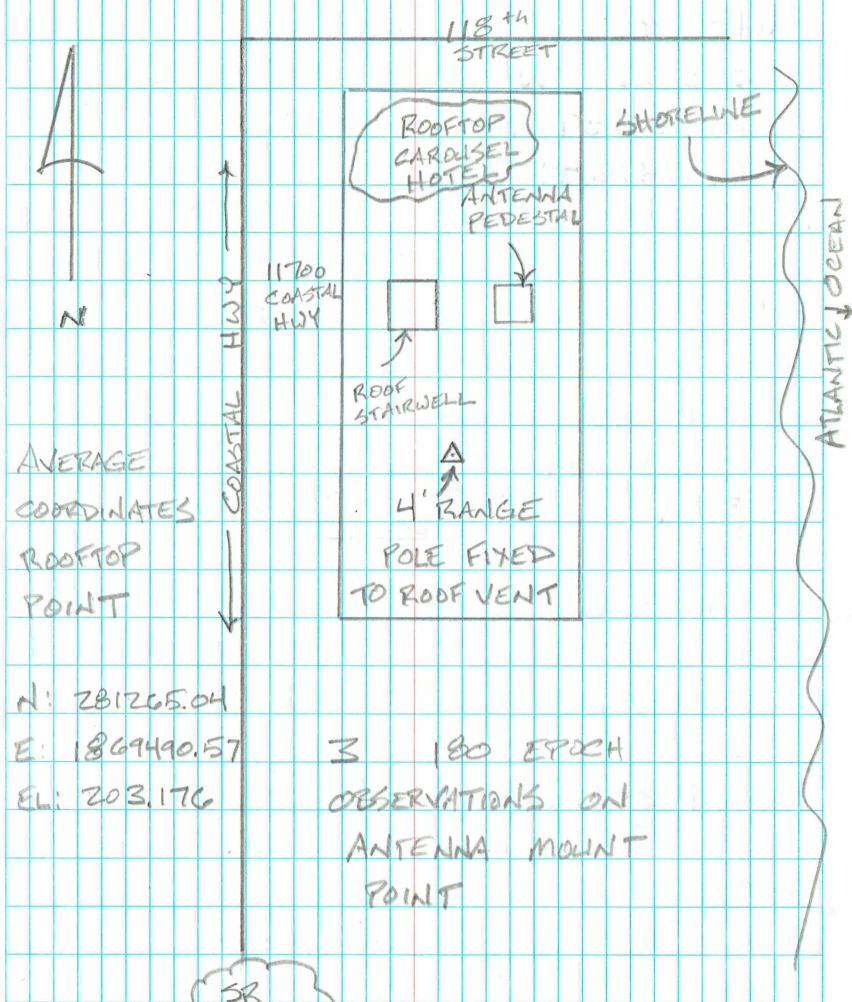 118th
STREET
ROOFTOP
CAROUSEL
HOTEL
SHORELINE
ANTENNA
PEDESTAL
ATLANTIC OCEAN
11700
COASTAL
HWY
COASTAL HWY
N
ROOF
STAIRWELL
4' RANGE
POLE FIXED
TO ROOF VENT
AVERAGE
COORDINATES
ROOFTOP
POINT
N: 281265.04
E: 1869490.57
EL: 203.176
3 180 EPOCH
OBSERVATIONS ON
ANTENNA MOUNT
POINT
SR